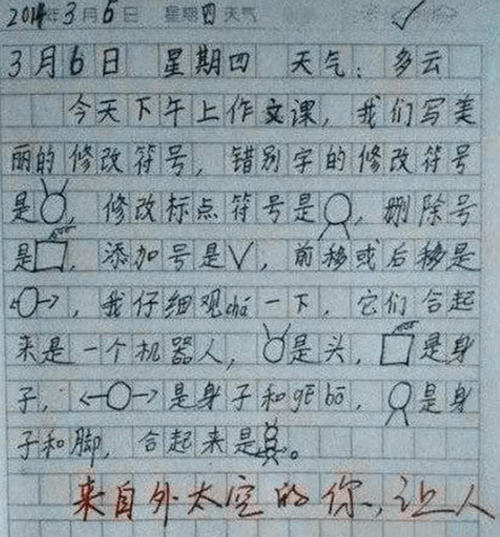 2014年3月6日 星期四 天气
3月6日 星期四 天气：多云
今天下午上作文课，我们写美
丽的修改符号，错别字的修改符号
是，修改标点符号是，删除号
是，添加号是√，前移或后移是
，我仔细观chá一下，它们合起
来是一个机器人，是头，是身
子，是身子和gē bō，是身
子和脚，合起来是。
来自外太空的你，让人